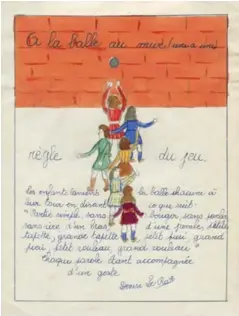 A la balle au mur
règle du jeu
les enfants lancent la balle chacune à
leur tour en disant ce qui suit:
"Partie simple, sans bouger, sans parler
sans rire d'un bras, d'une jambe, petite
tapette, grande tapette, petit puits, grand
puits, petit rouleau, grand rouleau"
Chaque parole étant accompagnée
d'un geste.